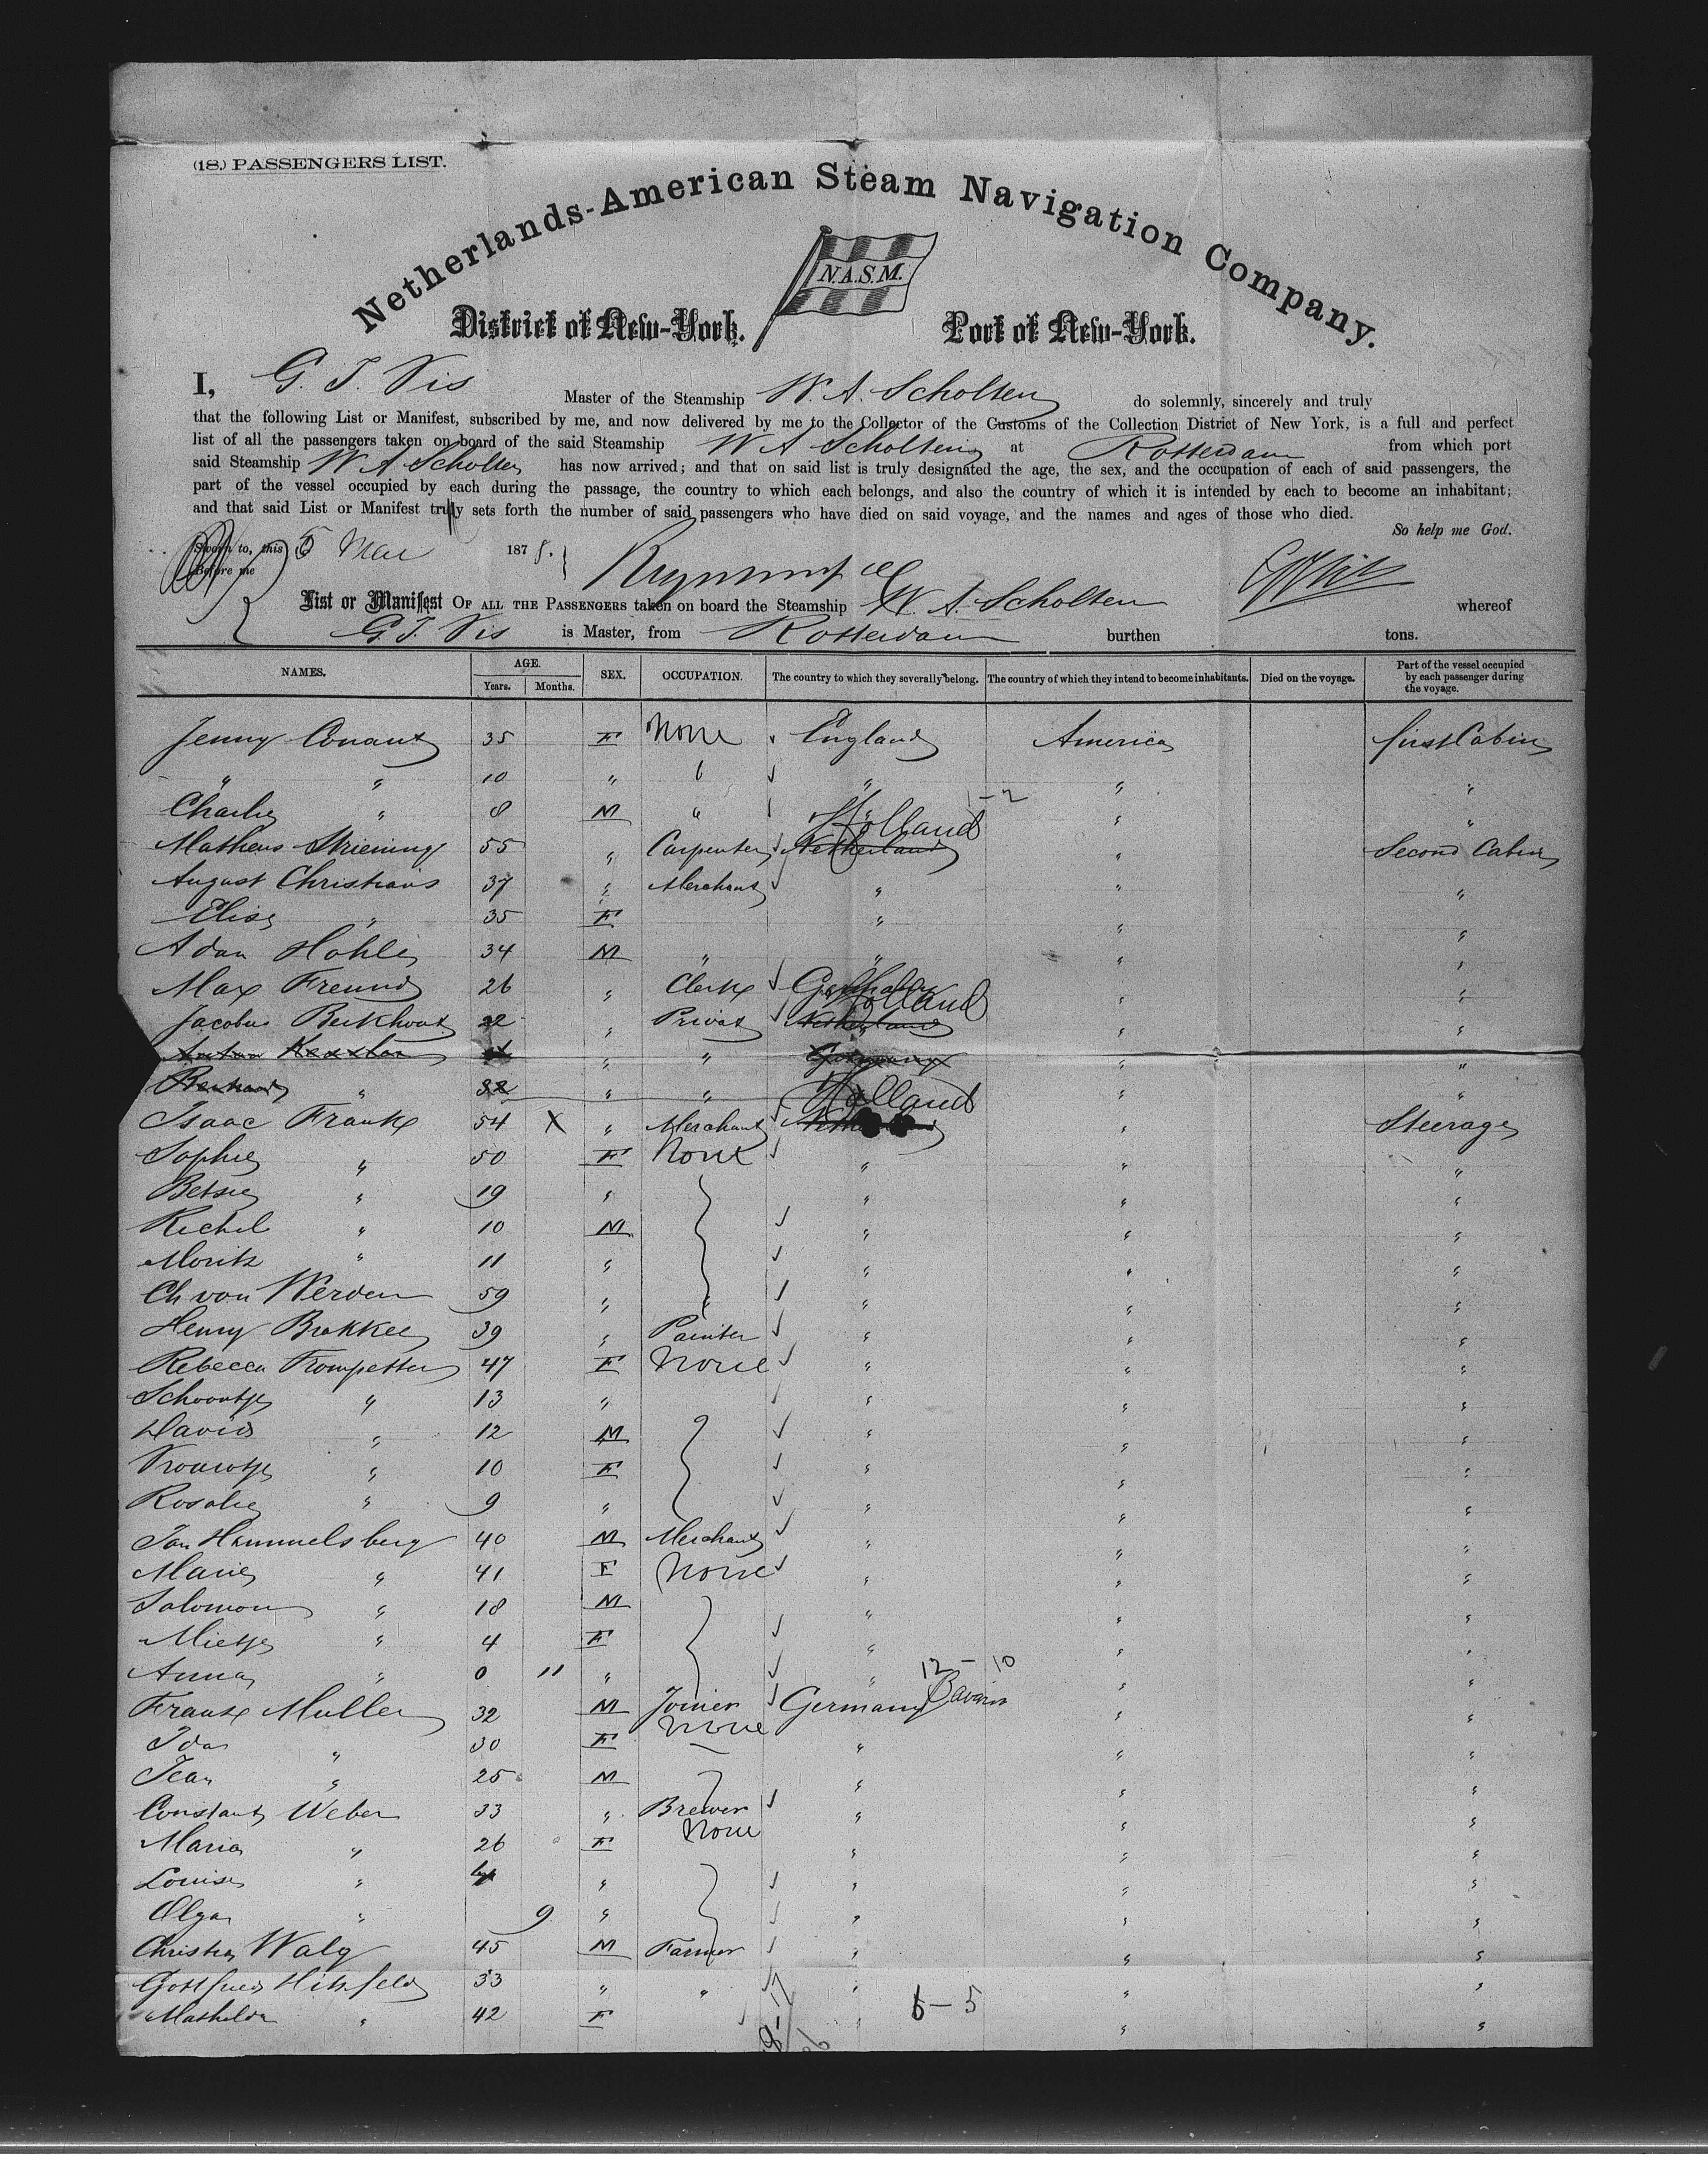 (18.) PASSENGERS LIST.
Netherlands-American Steam Navigation Company.
N.A.S.M.
District of New-York. Port of New-York.
I, G. J. Vis Master of the Steamship W. A. Scholten do solemnly, sincerely and truly
that the following List or Manifest, subscribed by me, and now delivered by me to the Collector of the Customs of the Collection District of New York, is a full and perfect
list of all the passengers taken on board of the said Steamship W A Scholten at Rotterdam from which port
said Steamship W A Scholten has now arrived; and that on said list is truly designated the age, the sex, and the occupation of each of said passengers, the
part of the vessel occupied by each during the passage, the country to which each belongs, and also the country of which it is intended by each to become an inhabitant;
and that said List or Manifest truly sets forth the number of said passengers who have died on said voyage, and the names and ages of those who died.
So help me God.
Sworn to, this 5 Mar 1878.
Before me
List or Manifest OF ALL THE PASSENGERS taken on board the Steamship W. A. Scholten whereof
G. J. Vis is Master, from Rotterdam burthen tons.
NAMES. AGE. Years. Months. SEX. OCCUPATION. The country to which they severally belong. The country of which they intend to become inhabitants. Died on the voyage. Part of the vessel occupied by each passenger during the voyage.
Jenny Conant 35 F None England America first Cabin
" " 10 " " " " "
Charley " 8 M " " " "
1-2
Mathews Striening 55 " Carpenter Netherland Holland " Second Cabin
August Christians 37 " Merchant " " "
Elise " 35 F " " "
Adan Hohle 34 M " " " "
Max Freund 26 " Clerk " "
Jacobus Berkhout 22 " Privat Netherland Holland " "
Anton 
" " Germany " "
Bernard " 32 " " " "
Isaac Frank 54 X " Merchant Holland " Steerage
Sophie " 50 F None " " "
Betsie " 19 " " " "
Rechel " 10 M " " "
Moritz " 11 " " " "
Ch von Werden 59 " " " " "
Henry Brakkee 39 " Painter " " "
Rebecca Trompetter 47 F None " " "
Schoontje " 13 " " " "
David " 12 M " " "
Vrouwtje " 10 F " " "
Rosalie " 9 " " " "
Jan Hammelsberg 40 M Merchant " " "
Marie " 41 F None " " "
Salomon " 18 M " " "
Mietje " 4 F " " "
Anna " 0 11 " " " "
12-10
Frank Muller 32 M Joiner Germany Bavaria " "
Ida " 30 F None " " "
Jean " 25 M " " "
Constant Weber 33 " Brewer " " "
Maria " 26 F None " " "
Louise " 4 " " " "
Olga " 9 " " " "
Christian Walz 45 M Farmer " " "
Gottfried Hitzfeld 33 " " " " "
Mathilda " 42 F " " "
6-5